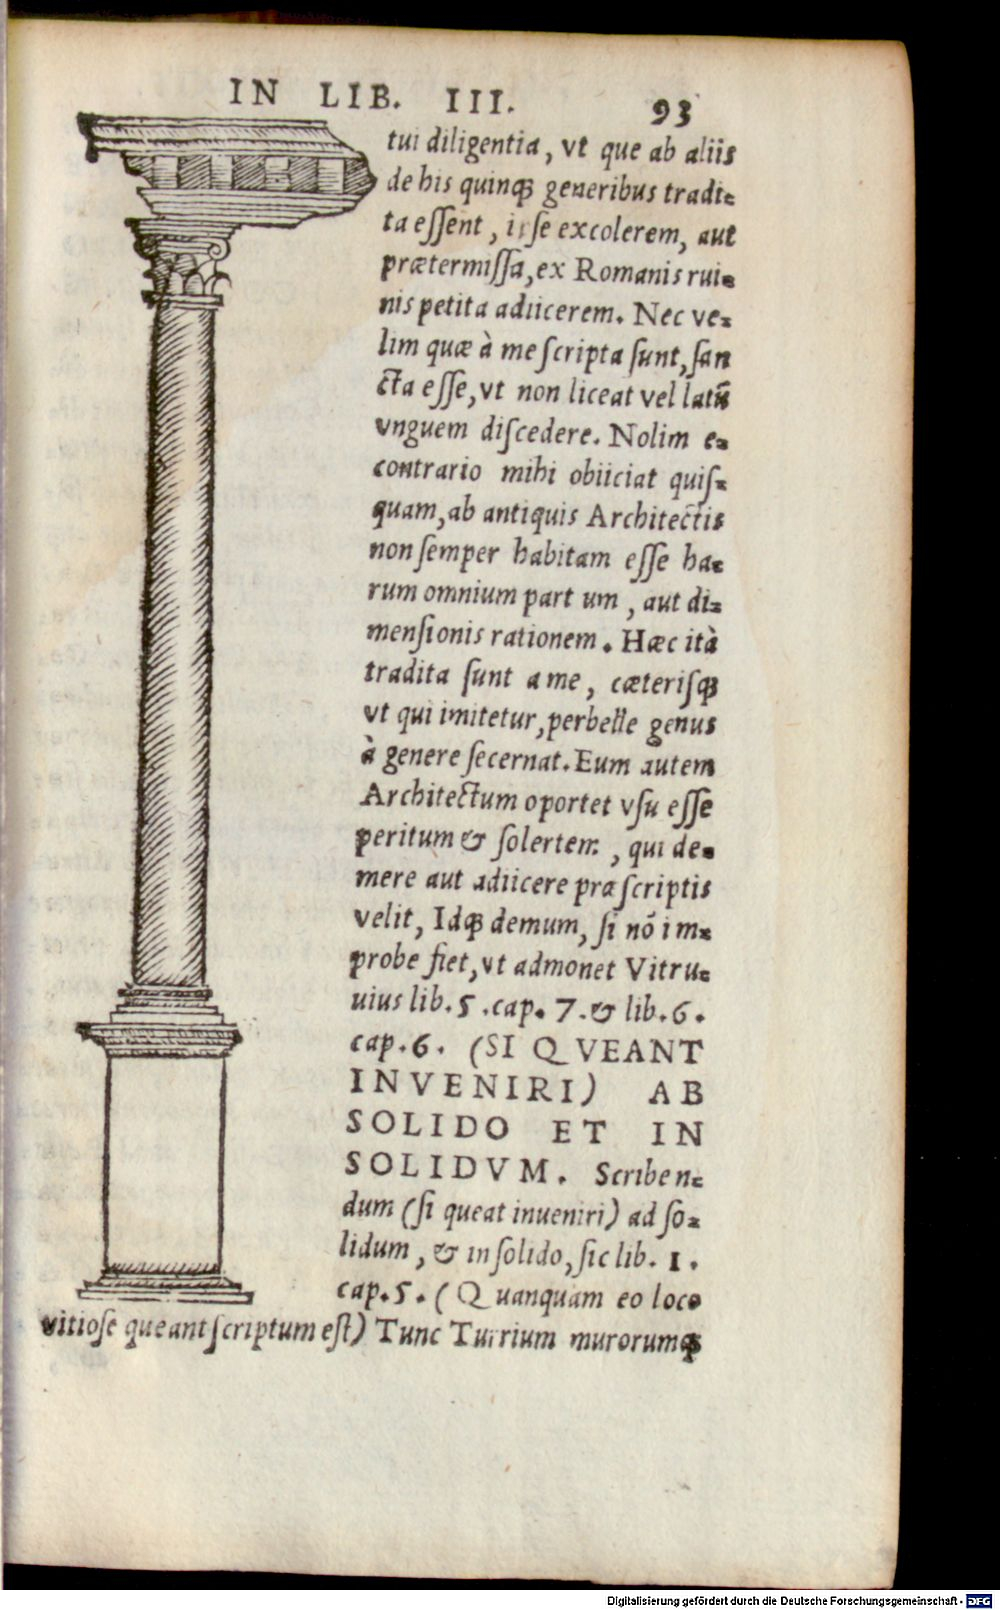 IN LIB. III. 93
tui diligentia, vt que ab aliis
de his quinqꝫ generibus tradi-
ta essent, ipse excolerem, aut
prætermissa, ex Romanis rui-
nis petita adiicerem. Nec ve-
lim quæ à me scripta sunt, san
cta esse, vt non liceat vel latũ
vnguem discedere. Nolim e-
contrario mihi obiiciat quis-
quam, ab antiquis Architectis
non semper habitam esse ha-
rum omnium part um, aut di-
mensionis rationem. Hæc ità
tradita sunt a me, cæterisqꝫ
vt qui imitetur, perbelle genus
à genere secernat. Eum autem
Architectum oportet vsu esse
peritum & solertem, qui de-
mere aut adiicere præscriptis
velit, Idqꝫ demum, si nõ im-
probe fiet, vt admonet Vitru-
uius lib. 5. cap. 7. & lib. 6.
cap. 6. (SI QVEANT
INVENIRI) AB
SOLIDO ET IN
SOLIDVM. Scriben-
dum (si queat inueniri) ad so-
lidum, & in solido, sic lib. 1.
cap. 5. (Quanquam eo loco
vitiose queant scriptum est) Tunc Turrium murorumqꝫ
Digitalisierung gefördert durch die Deutsche Forschungsgemeinschaft - DFG